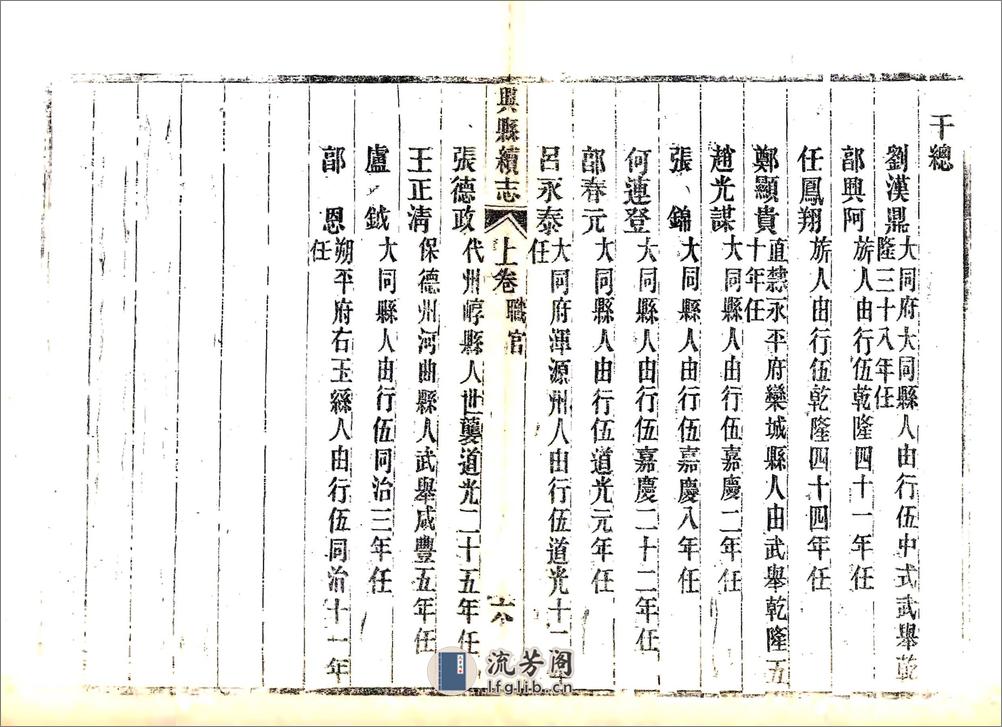 千總
劉漢鼎 大同府大同縣人由行伍中式武舉乾
隆三十八年任
郭興阿 旂人由行伍乾隆四十一年任
任鳳翔 旂人由行伍乾隆四十四年任
鄭顯貴 直隸永平府欒城縣人由武舉乾隆五
十年任
趙光謀 大同縣人由行伍嘉慶二年任
張錦 大同縣人由行伍嘉慶八年任
何連登 大同縣人由行伍嘉慶二十二年任
郭春元 大同縣人由行伍道光元年任
呂永泰 大同府渾源州人由行伍道光十二年
任
興縣續志 上卷 職官 六
張德政 代州崞縣人世襲道光二十五年任
王正清 保德州河曲縣人武舉咸豐五年任
盧鉞 大同縣人由行伍同治三年任
郭恩 朔平府右玉縣人由行伍同治十一年
任
流芳阁
lfglib.cn